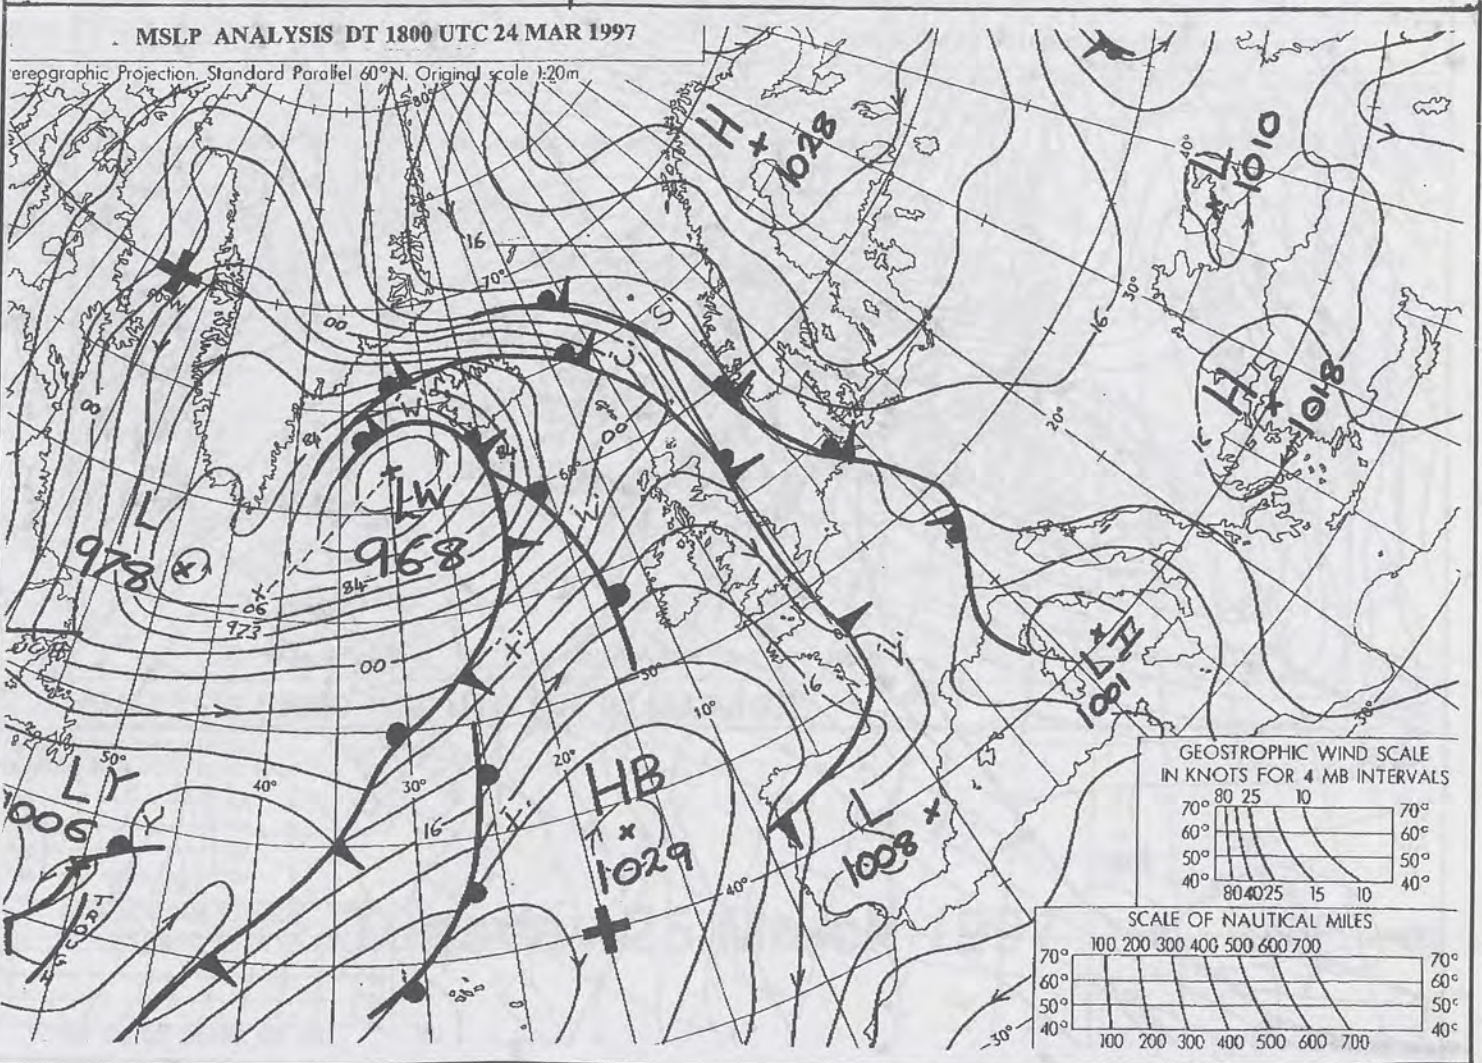 MSLP ANALYSIS DT 1800 UTC 24 MAR 1997
ereographic Projection. Standard Parallel 60°N. Original scale 1:20m
80°
H
1028
40°
L
1010
16
70°
30°
16
00
60°N
00
20°
H
1018
W
84
84
00
60°
L
978
LW
968
84
06
973
00
50°
16
10°
L
1001
30°
50°
LY
1006
Y
40°
30°
20°
HB
1029
16
L
1008
40°
TROUGH
30°
GEOSTROPHIC WIND SCALE
IN KNOTS FOR 4 MB INTERVALS
80 25 10
70° 70°
60° 60°
50° 50°
40° 40°
80 40 25 15 10
SCALE OF NAUTICAL MILES
100 200 300 400 500 600 700
70° 70°
60° 60°
50° 50°
40° 40°
100 200 300 400 500 600 700